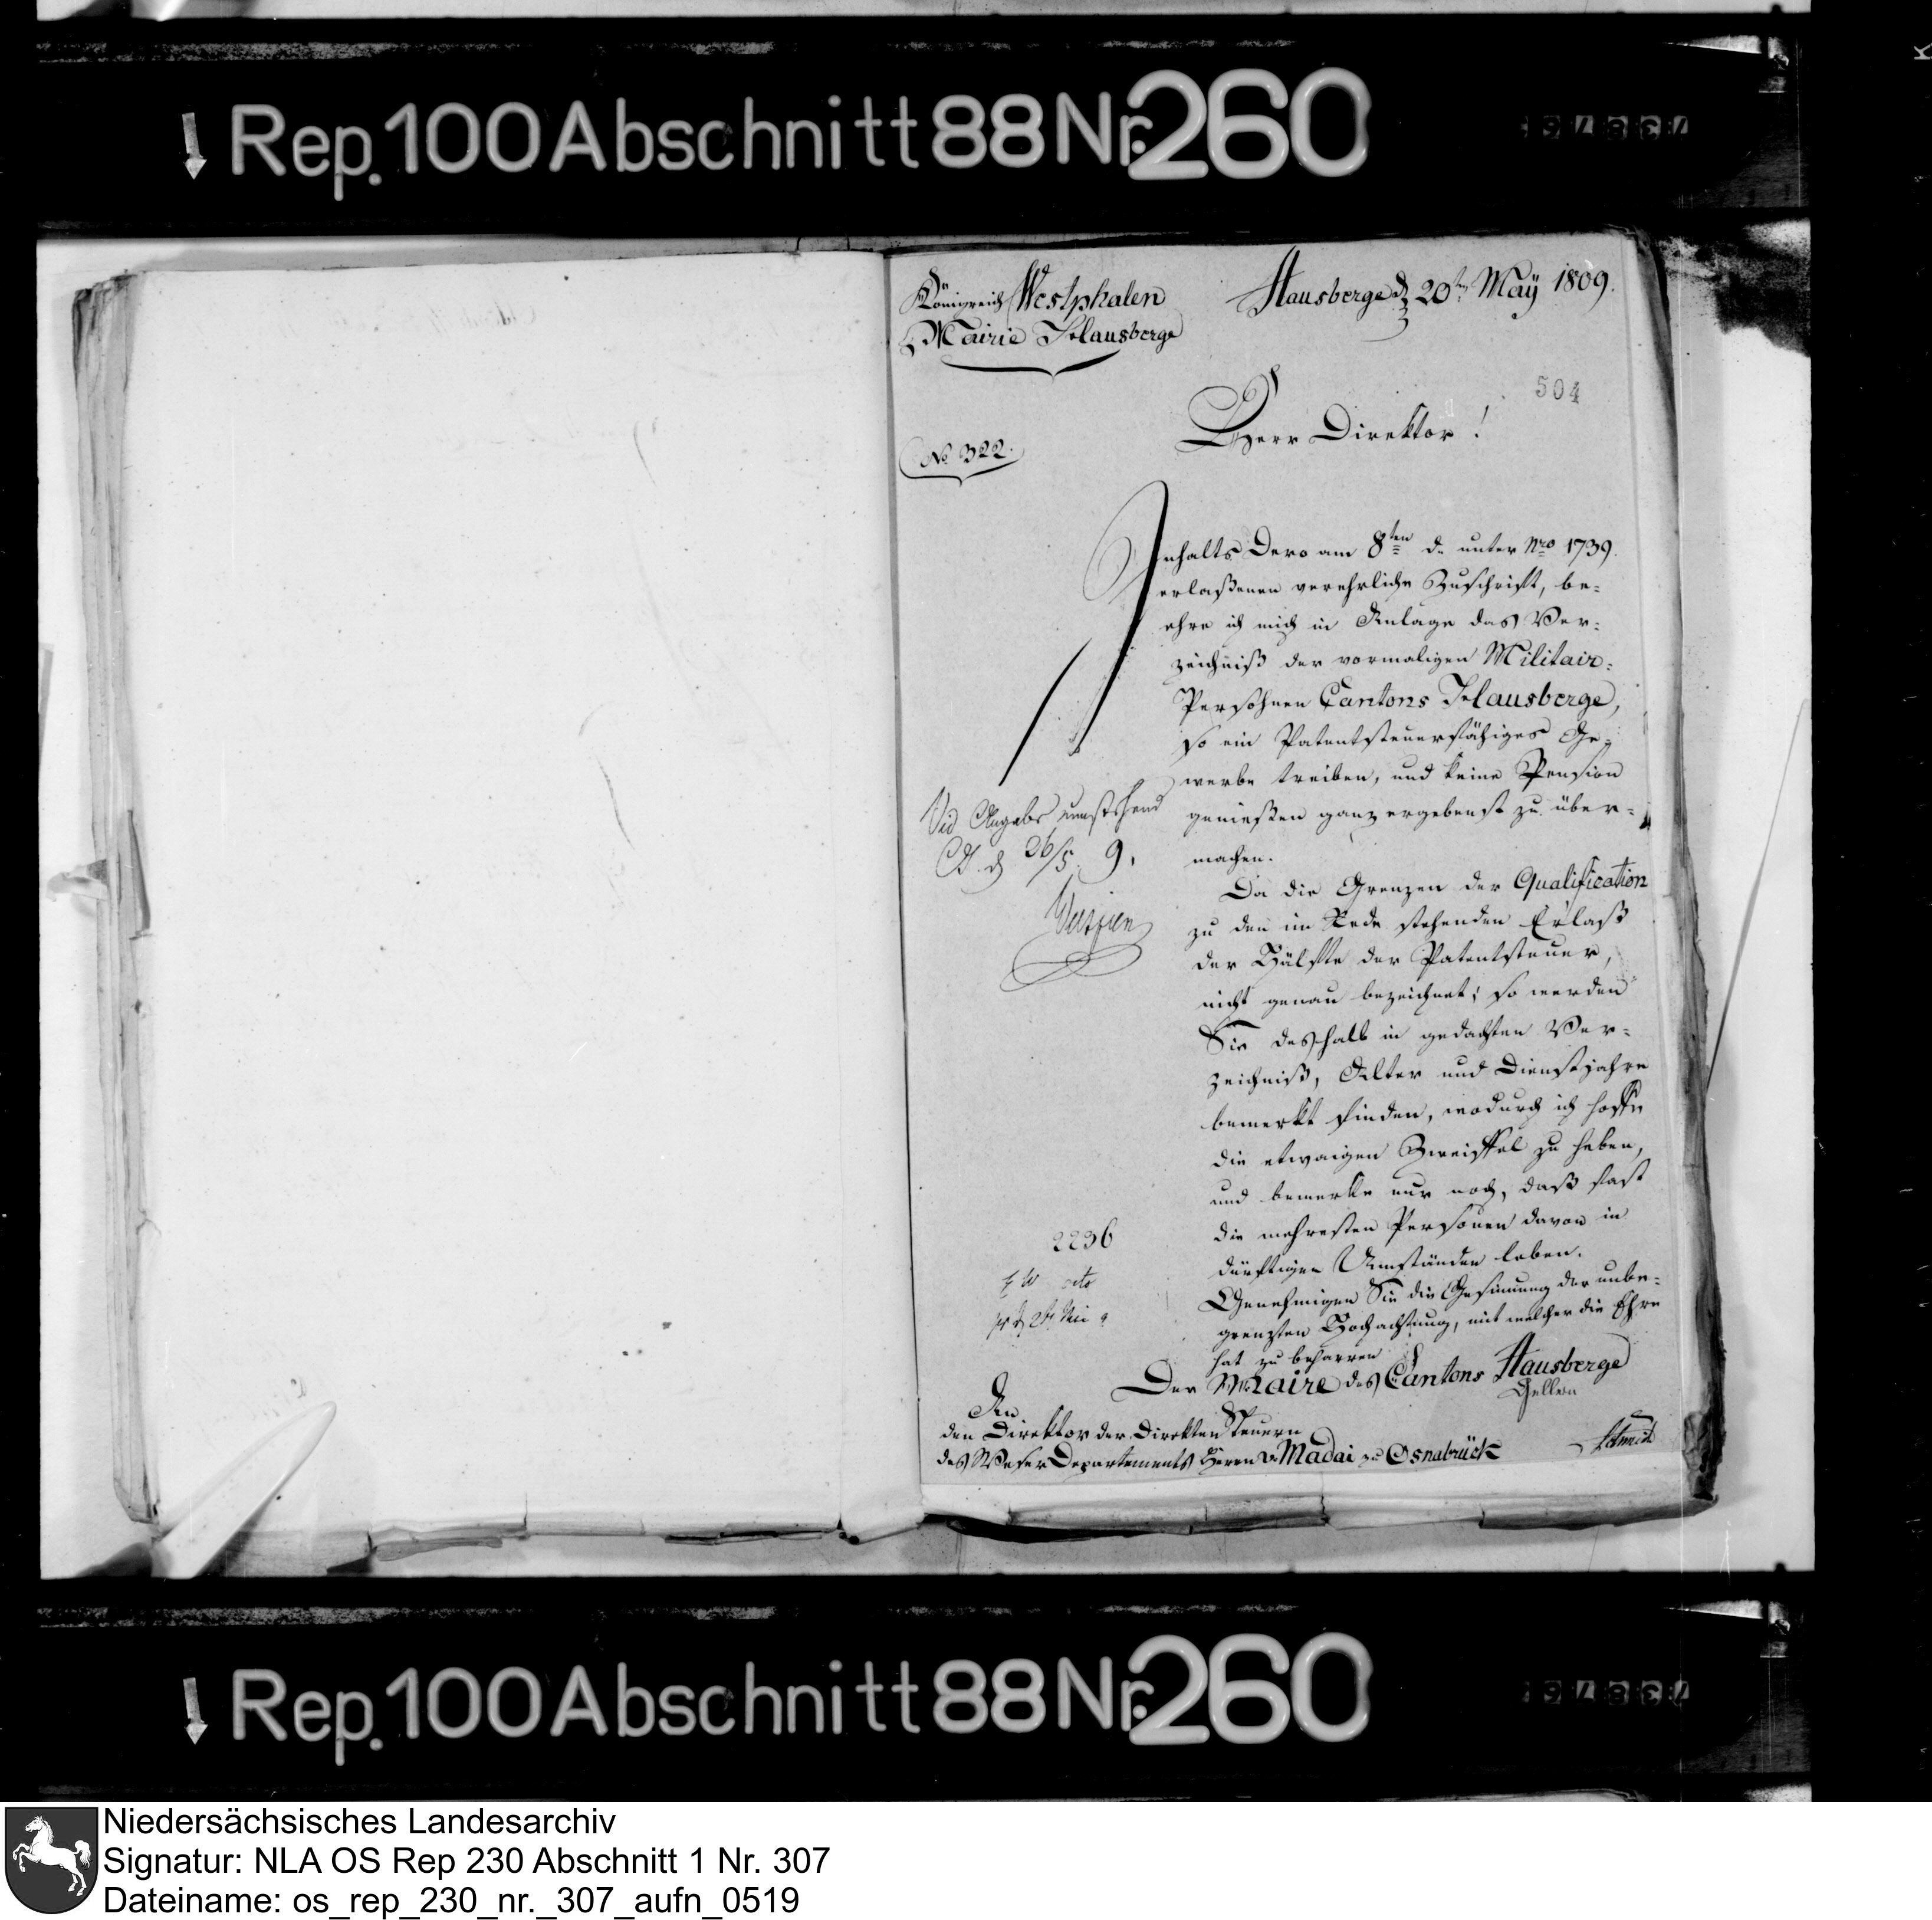 Rep. 100 Abschnitt 88 Nr. 260
Königreich Westphalen
Mairie Hausberge
Hausberge d 20ten May 1809.
504
Herr Direktor!
No 322.
Inhalts Dero am 8ten d. unter Nro 1739.
erlaßenen verehrliche Zuschrift, be-
ehre ich mich in Anlage das Ver-
zeichniß der vormaligen Militair-
Persohnen Cantons Hausberge,
so ein Patentsteuerfähiges Ge-
werbe treiben, und keine Pension
genießen ganz ergebenst zu über-
machen.
Da die Grenzen der Qualification
zu den im Rede stehenden Erlaß
der Hälfte der Patentsteuer,
nicht genau bezeichnet; so werden
Sie deshalb in gedachten Ver-
zeichniß, Alter und Dienstjahre
bemerkt finden, wodurch ich hoffe
die etwaigen Zweiffel zu heben,
und bemerke nur noch, daß fast
die mehresten Personen davon in
dürftigen Umständen leben.
Genehmigen Sie die Gesinnung der unbe-
grenzten Hochachtung, mit welcher die Ehre
hat zu beharren
Der Maire des Cantons Hausberge
Vid Angabe
26/5. 9.
2236
An
den Direktor der Direkten Steuern
des Weser Departements Herrn v. Madai zu Osnabrück
Rep. 100 Abschnitt 88 Nr. 260
Niedersächsisches Landesarchiv
Signatur: NLA OS Rep 230 Abschnitt 1 Nr. 307
Dateiname: os_rep_230_nr._307_aufn_0519